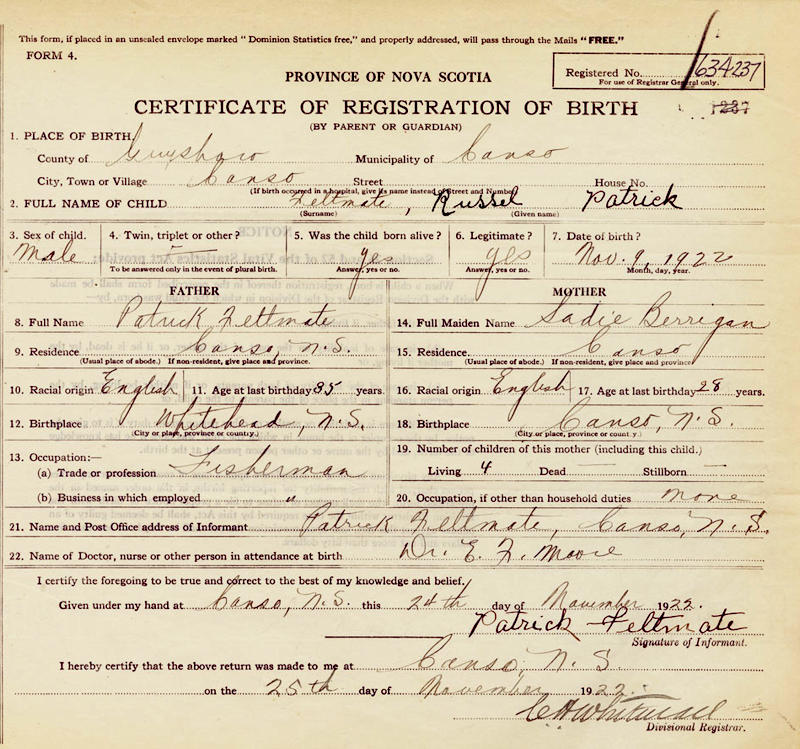 This form, if placed in an unsealed envelope marked "Dominion Statistics free," and properly addressed, will pass through the Mails "FREE."
FORM 4.
Registered No. 634237
For use of Registrar General only.
PROVINCE OF NOVA SCOTIA
CERTIFICATE OF REGISTRATION OF BIRTH 1237
(BY PARENT OR GUARDIAN)
1. PLACE OF BIRTH.
County of Guysboro Municipality of Canso
City, Town or Village Canso Street House No.
(If birth occurred in a hospital, give its name instead of Street and Number)
2. FULL NAME OF CHILD Feltmate, Russel Patrick
(Surname) (Given name)
3. Sex of child. 4. Twin, triplet or other? 5. Was the child born alive? 6. Legitimate? 7. Date of birth?
Male — yes yes Nov. 9, 1922
To be answered only in the event of plural birth. Answer, yes or no. Answer, yes or no. Month, day, year.
FATHER MOTHER
8. Full Name Patrick Feltmate 14. Full Maiden Name Sadie Berrigan
9. Residence Canso, N.S. 15. Residence Canso
(Usual place of abode.) If non-resident, give place and province. (Usual place of abode.) If non-resident, give place and province
10. Racial origin English 11. Age at last birthday 35 years. 16. Racial origin English 17. Age at last birthday 28 years.
12. Birthplace Whitehead, N.S. 18. Birthplace Canso, N.S.
(City or place, province or country.) (City or place, province or country.)
13. Occupation:— 19. Number of children of this mother (including this child.)
(a) Trade or profession Fisherman Living 4 Dead — Stillborn —
(b) Business in which employed " 20. Occupation, if other than household duties none
21. Name and Post Office address of Informant Patrick Feltmate, Canso, N.S.
22. Name of Doctor, nurse or other person in attendance at birth Dr. E. F. Moore
I certify the foregoing to be true and correct to the best of my knowledge and belief.
Given under my hand at Canso, N.S. this 24th day of November 1922.
Patrick Feltmate
Signature of Informant.
I hereby certify that the above return was made to me at Canso, N.S.
on the 25th day of November 1922.
Divisional Registrar.